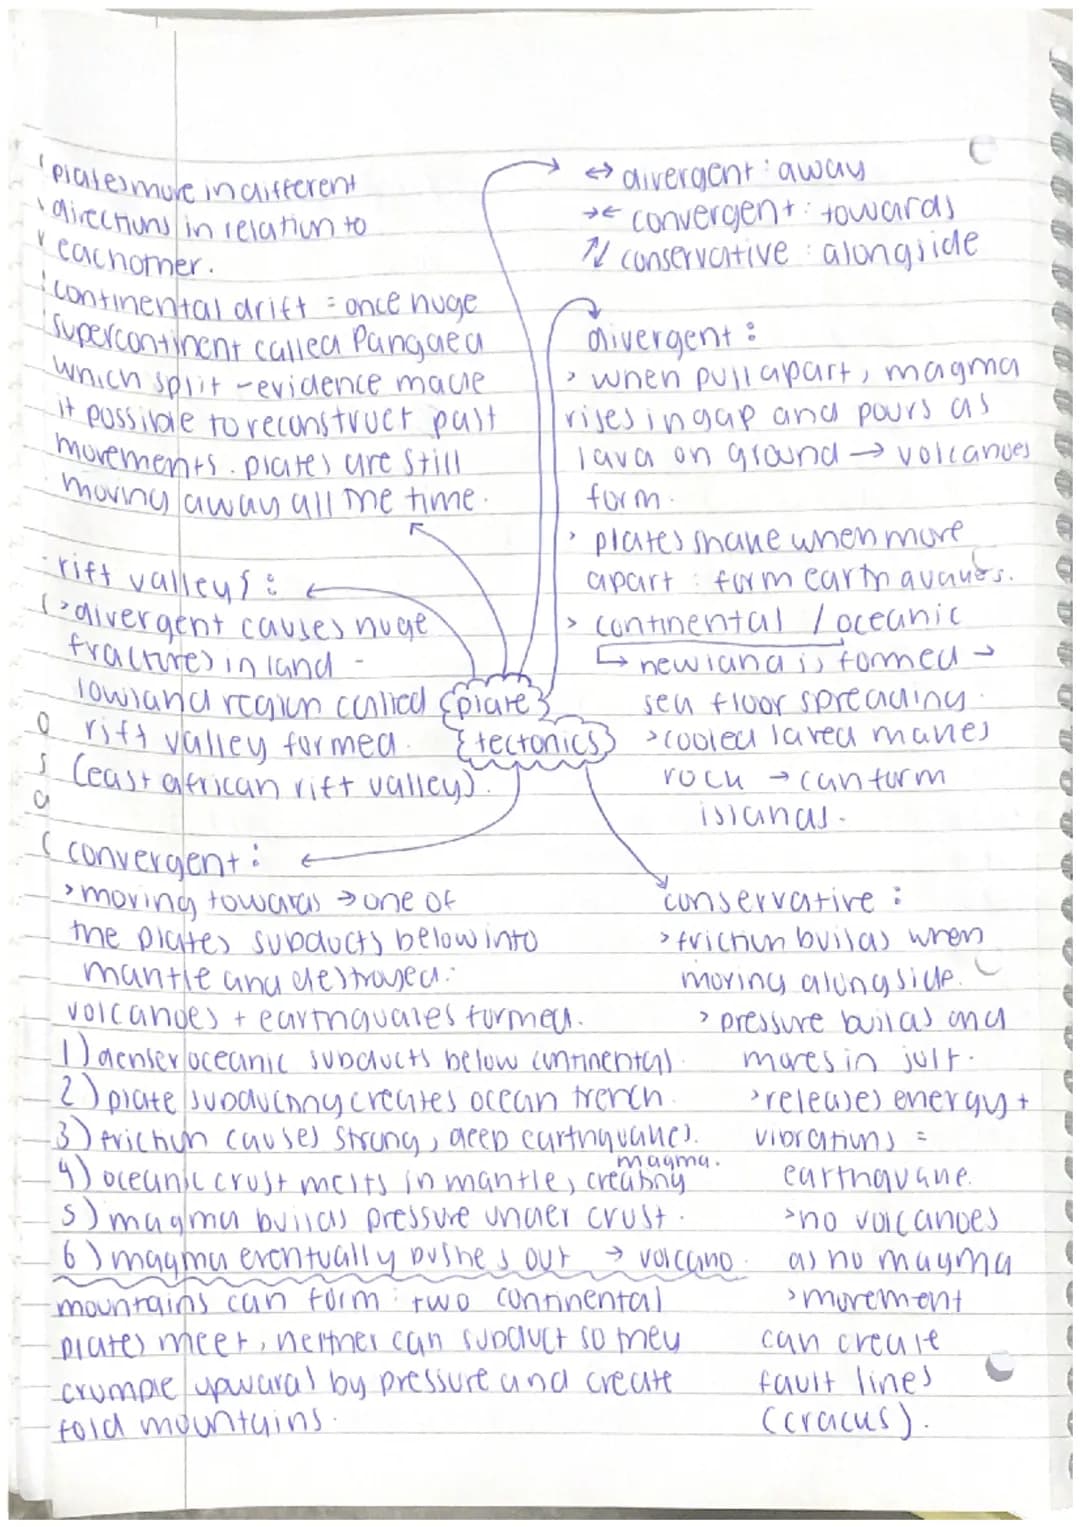 plates move in different
directions in relation to
eachother.
continental drift = once huge
supercontinent called Pangaea
which split - evidence made
it possible to reconstruct past
movements. plates are still
moving away all the time.
rift valleys:
> divergent causes huge
fractures in land -
lowland region called
rift valley formed.
(east african rift valley).
plate
tectonics
↔ divergent: away
→← convergent: towards
⇅ conservative: alongside
divergent:
> when pull apart, magma
rises in gap and pours as
lava on ground → volcanoes
form.
> plates shake when move
apart: form earthquakes.
> continental / oceanic
↳ new land is formed →
sea floor spreading.
> cooled lava makes
rock → can form
islands.
convergent:
> moving towards → one of
the plates subducts below into
mantle and destroyed.
volcanoes + earthquakes formed.
1) denser oceanic subducts below continental.
2) plate subducting creates ocean trench.
3) friction causes strong, deep earthquakes.
4) oceanic crust melts in mantle, creating magma.
5) magma builds pressure under crust.
6) magma eventually pushes out → volcano.
mountains can form: two continental
plates meet, neither can subduct so they
crumple upwards by pressure and create
fold mountains.
conservative:
> friction builds when
moving alongside.
> pressure builds and
moves in jolt.
> releases energy +
vibrations =
earthquake.
> no volcanoes
as no magma
> movement
can create
fault lines
(cracks).